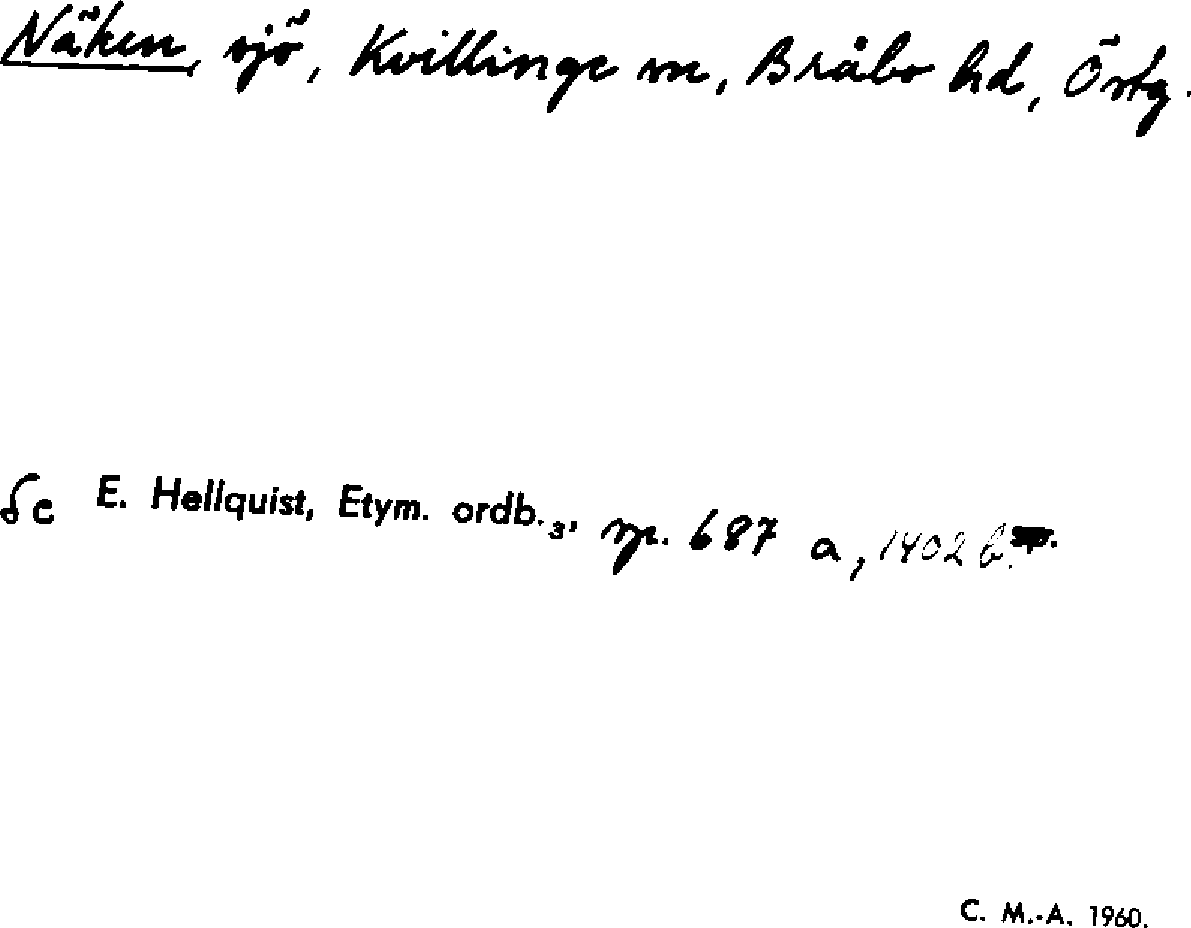 Näken, sjö, Kvillinge sn, Bråbo hd, Östg.
Se E. Hellquist, Etym. ordb.3, sp. 687 a, 1402 b.
C. M.-A. 1960.